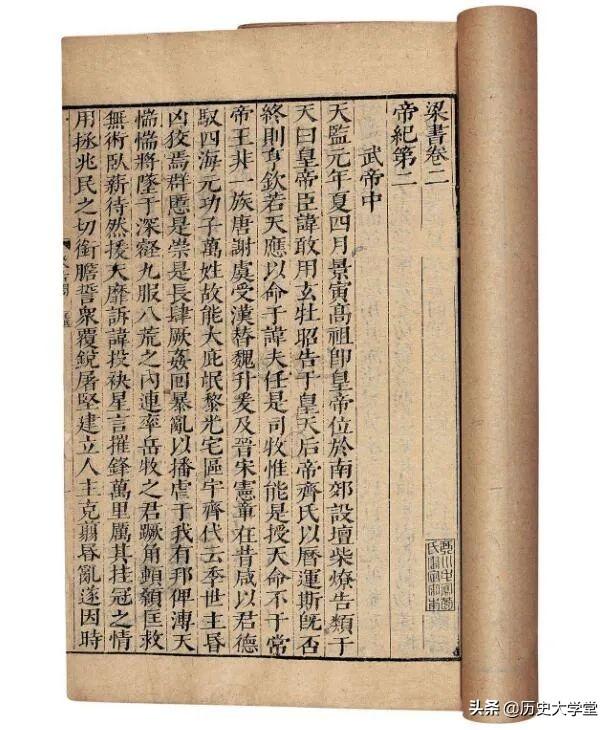 梁書卷二
帝紀第二
武帝中
天監元年夏四月景寅高祖卽皇帝位於南郊設壇柴燎告類于
天曰皇帝臣諱敢用玄牡昭告于皇天后帝齊氏以曆運斯旣否
終則亨欽若天應以命于諱夫任是司牧惟能是授天命不于常
帝王非一族唐謝虞受漢替魏升爰及晉宋憲章在昔咸以君德
馭四海元功子萬姓故能大庇氓黎光宅區宇齊代云季世主昏
凶狡焉群慝是崇是長肆厥姦回暴亂以播虐于我有邦俾溥天
惴惴將墜于深壑九服八荒之內連率岳牧之君蹶角頓顙匡救
無術臥薪待然援天靡訴諱投袂星言摧鋒萬里厲其挂冠之情
用拯兆民之切銜膽誓衆覆銳屠堅建立人主克翦昏亂遂因時
头条 @历史大学堂